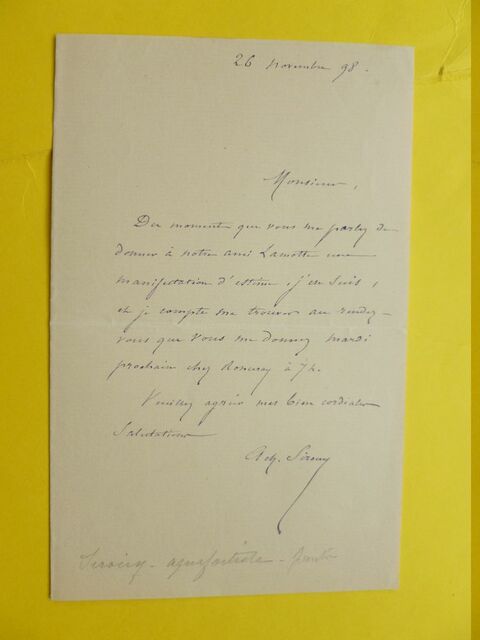 26 novembre 98.
Monsieur,
Du moment que vous me parlez de
donner à notre ami Lamotte une
manifestation d'estime, j'en suis,
et je compte me trouver au rendez-
vous que vous me donnez mardi
prochain chez à 7h.
Veuillez agréer mes bien cordiales
salutations
Ach. Sirouy
Sirouy - aquafortiste -